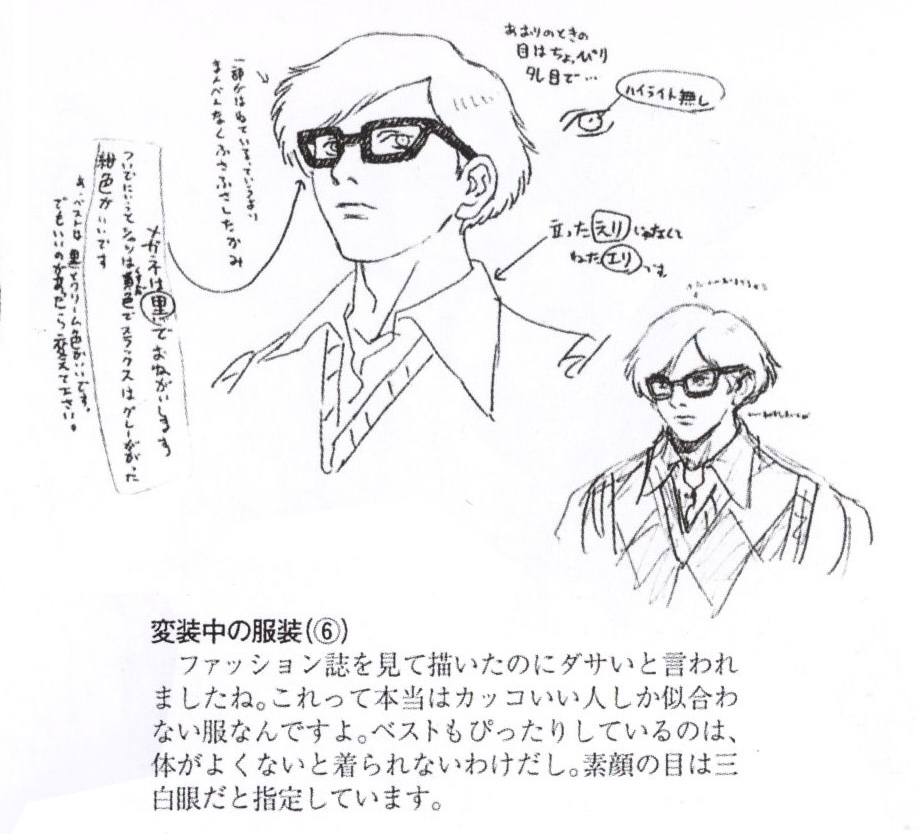 あおりのときの
目はちょっぴり
タレ目で…
ハイライト無し
一部がはねている。っていうより
まんべんなくふさふさしたかみ
立った えり じゃなくて
ねた エリ です
メガネは黒でおねがいします
ついでにいってシャツは黄色でスラックスはグレーがかった
紺色がいいです
あ、ベストは黒とクリーム色がいいです。
でもいいのがあったら変えて下さい。
変装中の服装(⑥)
ファッション誌を見て描いたのにダサいと言われ
ましたね。これって本当はカッコいい人しか似合わ
ない服なんですよ。ベストもぴったりしているのは、
体がよくないと着られないわけだし。素顔の目は三
白眼だと指定しています。